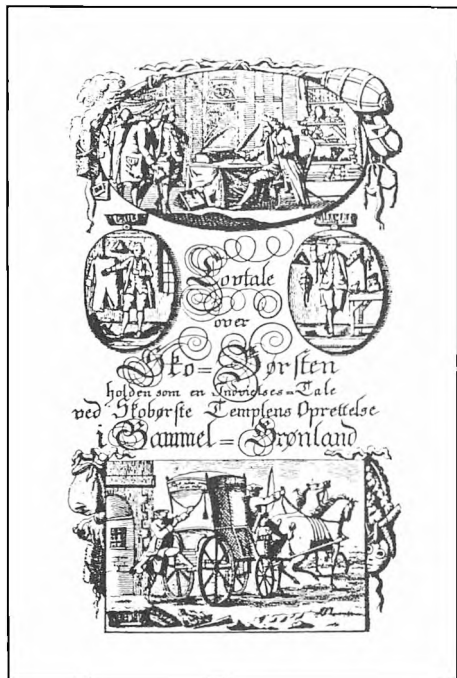 Lovtale
over
Sko=Børsten
holden som en Indvielses=Tale
ved Skobørste Templens Oprettelse
i Gammel=Grønland